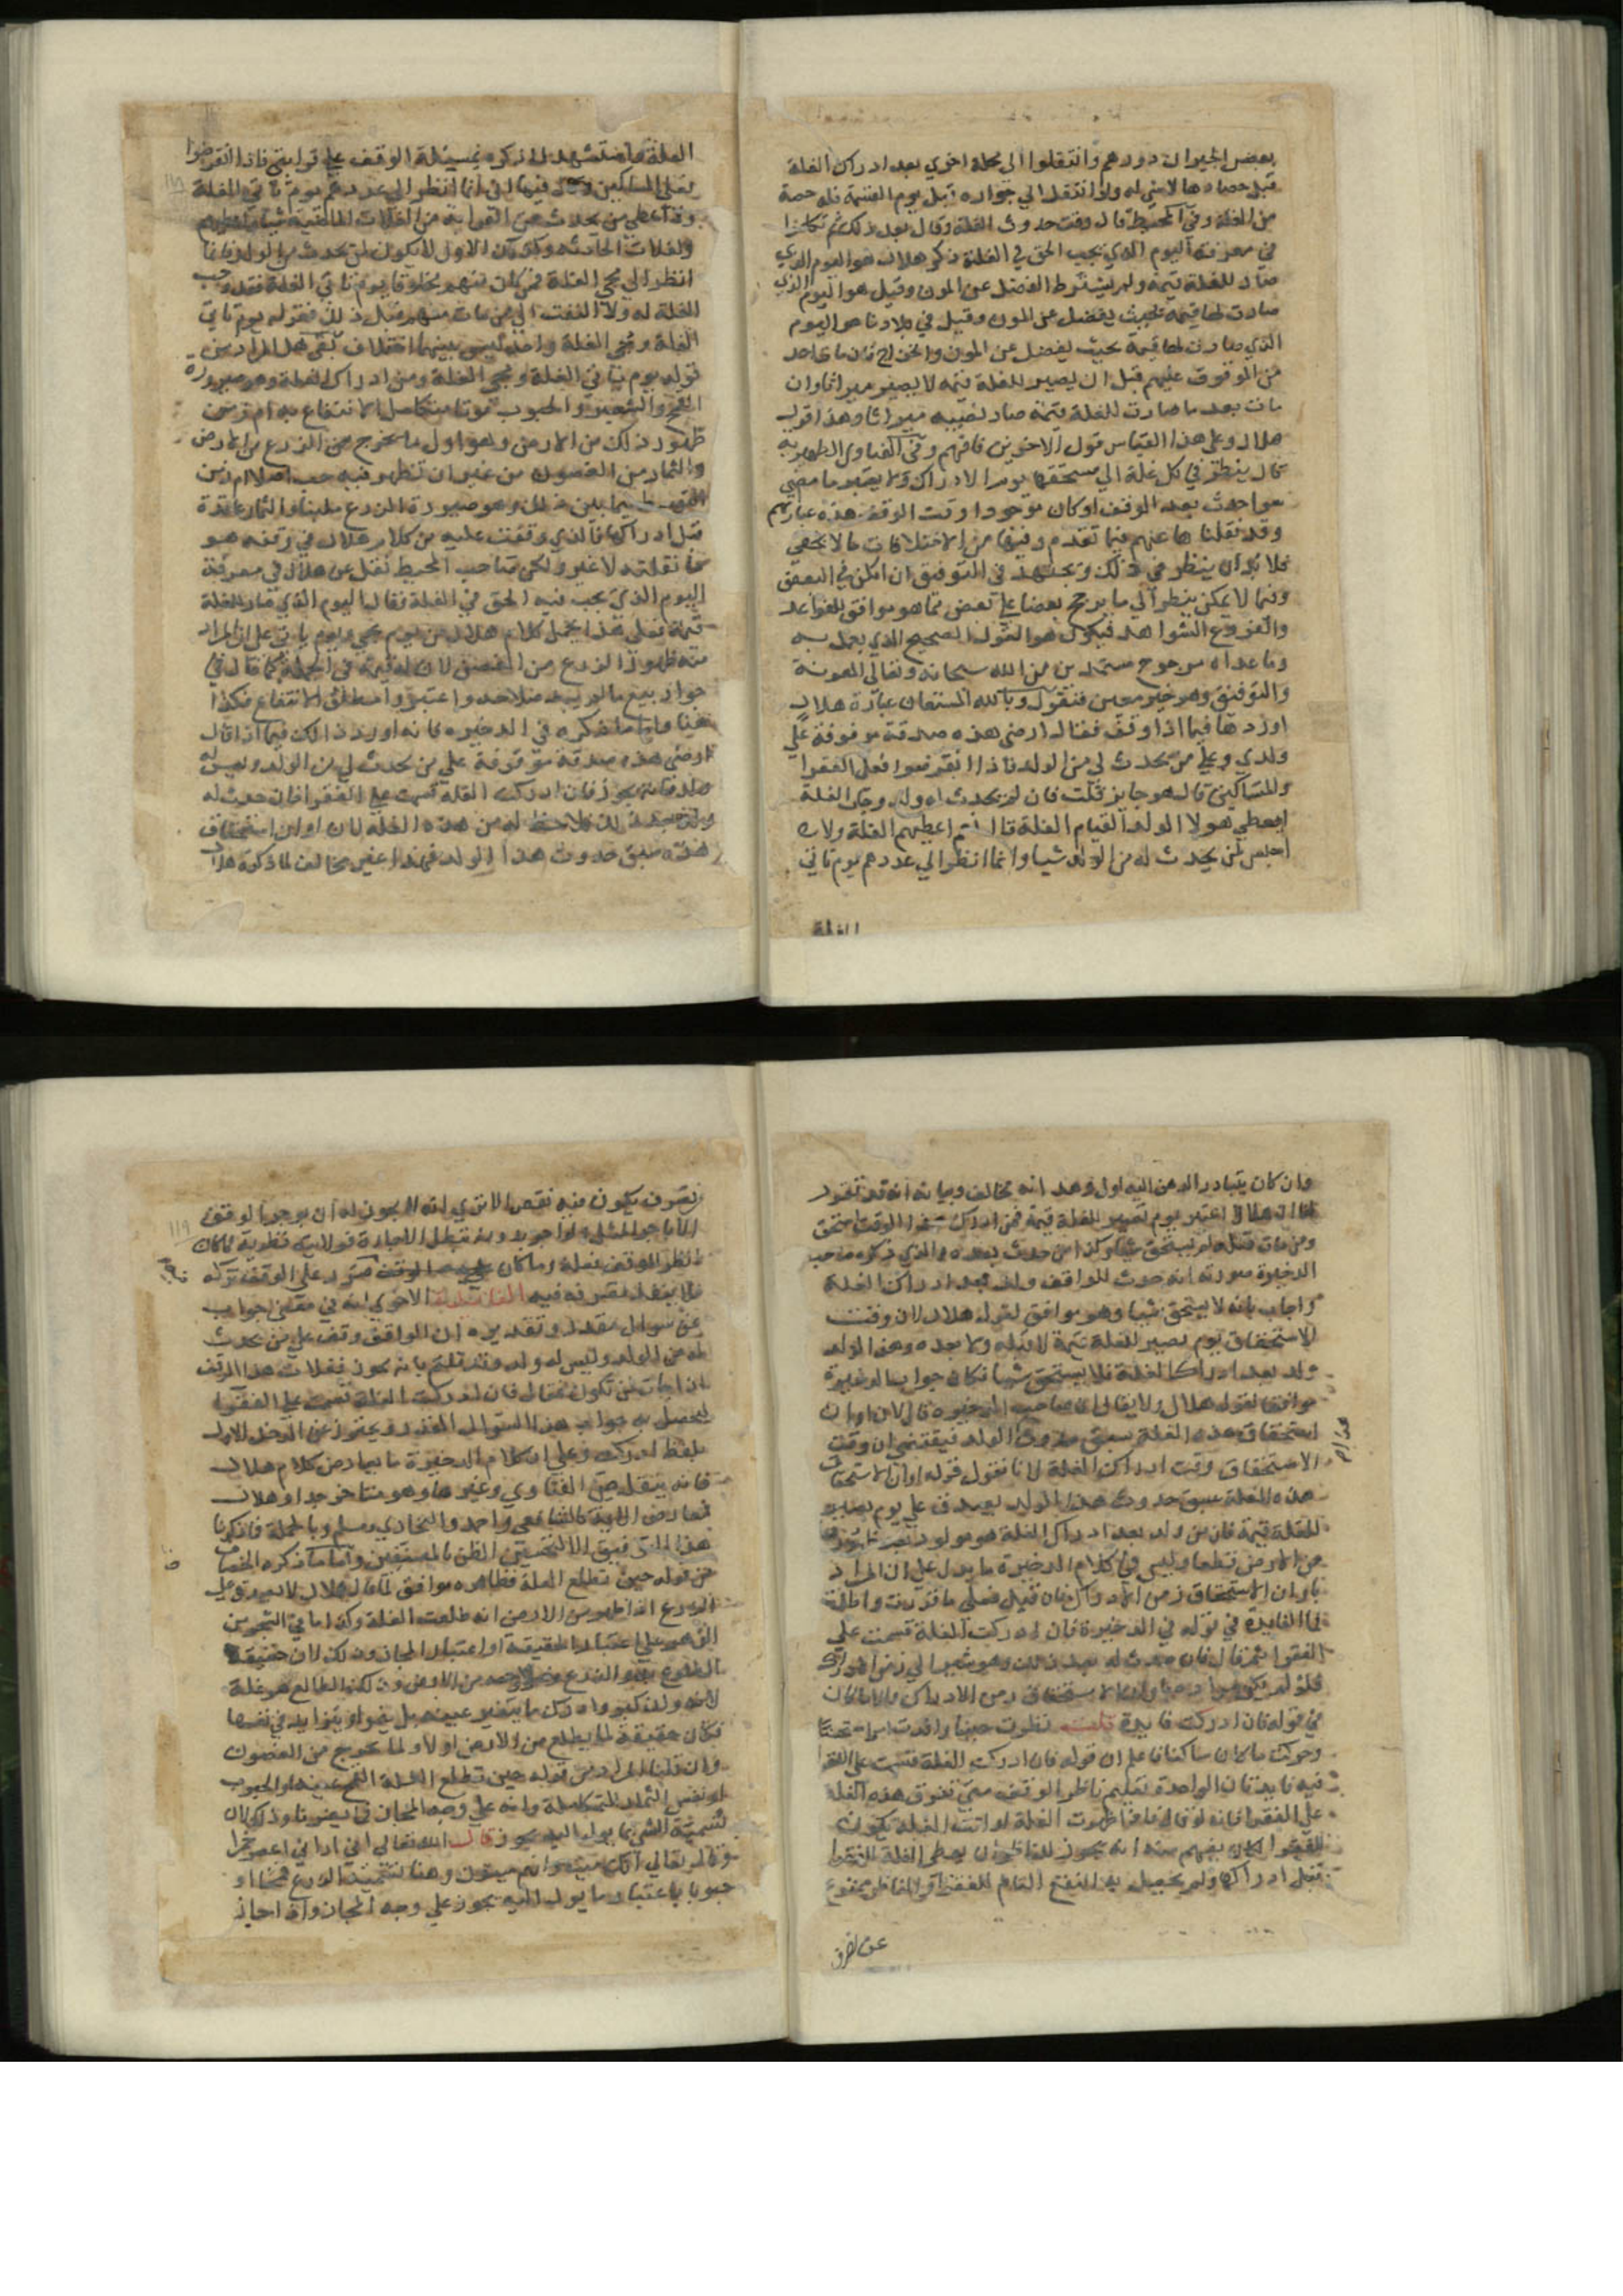 بعض الجيران دورهم وانتقلوا الى محلة اخري بعد ادراك الغلة
قبل حصادها لا شي له ولو انتقل الي جواره قبل يوم القسمة فله حصة
من الغلة وفي المحيط قال وقت حدوث الغلة وقال بعد ذلك ثم تكلموا
في معرفة اليوم الذي يجب الحق في الغلة ذكر هلال هو اليوم الذي
صار للغلة قيمة ولم يشترط الفضل عن المون وقيل هو اليوم الذي
صارت لها قيمة بحيث يفضل عن المون وقيل في بلادنا هو اليوم
الذي صارت لها قيمة بحيث يفضل عن المون والخراج فان مات احد
من الموقوف عليهم قبل ان يصير للغلة قيمة لا يصير ميراثا وان
مات بعد ما صارت للغلة قيمة صار نصيبه ميراثا وهذا قول
هلال وعلى هذا القياس قول الاخرين فافهم وفي الفتاوي الظهيريه
قال ينظر في كل غلة الي مستحقها يوم الادراك ولا يعتبر ما مضي
سوا حدث بعد الوقف او كان موجودا وقت الوقف هذه عبارتهم
وقد نقلنا ها عنهم فيما تقدم وفيها من الاختلافات ما لا يخفي
فلا بد ان ينظر في ذلك ويجتهد في التوفيق ان امكن في البعض
وفيما لا يمكن ينظر الي ما يرجح بعضا علي بعض مما هو موافق للقواعد
والفروع الشواهد فيكون هو القول الصحيح الذي يعمل به
وما عداه مرجوح مستمدين من الله سبحانه وتعالى المعونة
والتوفيق وهو خير معين فنقول وبالله المستعان عبارة هلال
اوردها فيما اذا وقف فقال ارضي هذه صدقة موقوفة علي
ولدي وعلي من يحدث لي من الولد فاذا انقرضوا فعلى الفقرا
والمساكين قال هو جايز قلت فان لم يحدث له ولد وجات الغلة
ايعطي هولا الولد القيام الغلة قال نعم اعطيهم الغلة ولا
احبس لمن يحدث له من الولد شيا وانما انظر الي عددهم يوم تاتي
الغلة
الغلة واستشهد لما ذكره بمسئلة الوقف علي قرابتي فاذا انقرضوا
فعلى المساكين وقال فيها اني انما انظر الي عددهم يوم تاتي الغلة
ولا اعطي من يحدث من القرابه من الغلات الماضية شيا
والغلات الحادثه وكذلك الاول لا يكون لمن يحدث من الولد انما
انظر الي مجي الغلة فمن كان منهم مخلوقا يوم تاتي الغلة فقد وجب
الغلة له ولا التفت الي من مات منهم قبل ذلك فقوله يوم تاتي
الغلة ومجي الغلة واحد ليس بينهما اختلاف بقي هل المراد من
قوله يوم تاتي الغلة ومجي الغلة زمن ادراك الغلة وهو صيرورة
القمح والشعير والحبوب قوتا متكامل الانتفاع به ام زمن
ظهور ذلك من الارض وهو اول ما يخرج من الزرع من الارض
والثمار من الغصون من غير ان تظهر فيه حب اصلا ام زمن
فيما بين ذلك وهو صيرورة الزرع سنبلا والثمار عاقدة
قبل ادراكها فالذي وقفت عليه من كلام هلال في وقفه هو
ما نقلته لا غير ولكن صاحب المحيط نقل عن هلال في معرفة
اليوم الذي يجب فيه الحق في الغلة فقال اليوم الذي صار للغلة
قيمة فعلى هذا يحمل كلام هلال من يوم مجي ويوم ياتي على ان المراد
منه ظهور الزرع من الغصن لان له قيمة في الجملة كما قال في
جواز بيع ما لم يبد صلاحه واعتبروا مطلق الانتفاع فكذا
هنا واما ما ذكره في الدخيره فانه اورد ذلك فيما اذا قال
ارضي هذه صدقة موقوفة علي من يحدث لي من الولد وليس له
ولد فانه يجوز فان ادركت الغلة قسمت علي الفقرا فان حدث له
ولد بعد ذلك فلا حظ له من هذه الغلة لان اوان استحقاق
هذه سبق حدوث هذا الولد فهذا غير مخالف لما ذكره هلال
وان كان يتبادر الذهن اليه اول وهلة انه مخالف وبيانه انه قد تقرر
ان هلالا اعتبر يوم تصير للغلة قيمة فمن ادرك هذا الوقت استحق
ومن مات قبله لم يستحق شيا وكذا من حدث بعده والذي ذكره صاحب
الدخيرة صورته انه حدث للواقف ولد بعد ادراك الغلة
واجاب بانه لا يستحق شيا وهو موافق لقول هلال لان وقت
الاستحقاق يوم يصير للغلة قيمة لا قبله ولا بعده وهذا الولد
ولد بعد ادراك الغلة فلا يستحق شيا فكان جواب الدخيرة
موافقا لقول هلال ولا يقال ان صاحب الدخيره قال لان اوان
استحقاق هذه الغلة سبق حدوث الولد فيقتضي ان وقت
الاستحقاق وقت ادراك الغلة لانا نقول قوله اوان الاستحقاق
هذه الغلة سبق حدوث هذا الولد يصدق علي يوم يصير
للغلة قيمة فان من ولد بعد ادراك الغلة هو مولود بعد
من الارض قطعا وليس في كلام الدخيرة ما يدل على ان المراد
باوان الاستحقاق زمن الادراك فان قيل فعلى ما قررت
فما الفايدة في قوله في الدخيرة فان ادركت الغلة قسمت علي
الفقرا ثم قال فان حدث له بعد ذلك وهو مشيرا الي زمن الادراك
فلو لم يكن اوان الاستحقاق زمن الادراك والا ما كان
في قوله فان ادركت فايدة قلت نظرت حسنا
وحركت ما كان ساكنا فاعلم ان قوله فان ادركت الغلة قسمت على الفقرا
فيه فايدتان الواحدة تعليم ناظر الوقف متى تفرق هذه الغلة
على الفقرا فانه لو قال فاذا ظهرت الغلة او اتت الغلة تكون
للفقرا لكان يفهم منه انه يجوز للناظر ان يعطي الغلة للفقرا
قبل ادراكها ولم يحصل به النفع التام للفقرا والناظر ممنوع
عن تصرف
تصرف يكون فيه نقص الا تري انه لا يجوز له ان يوجر الوقف
الا باجر المثل
ناظر الوقف
المقابلة الاخري انه في مقتضى جواب
عن سوال مقدر وتقديره ان الواقف وقف علي من يحدث
له من الولد وليس له ولد وقد قلتم بانه يجوز فغلات هذا الوقف
اذا جات لمن تكون فقال فان ادركت الغلة قسمت علي الفقرا
ليحصل به جواب هذا السوال المقدر ويحترز عن الدخل الاول
بلفظ ادركت وعلي ان كلام الدخيرة ما يعارض كلام هلال
فانه ينقل من الفتاوي وغيرها وهو متاخر جدا وهلال
كالشافعي واحمد والبخاري ومسلم وبالجملة فاذكرنا
هذا التوفيق الا لتحسين الظن بالمصنفين واما ما ذكره الخصاف
من قوله حين تطلع الغلة فظاهره موافق لما قال هلال لانه يصدق علي
الزرع اذا ظهر من الارض انه طلعت الغلة وكذا ما في الشجر من
علي اعتبار الحقيقة او اعتبار المجاز وذلك لان حقيقة
الطلوع بدو الزرع وخروجه من الارض وذلك الطالع هو غلة
لانه ولد كبير وادرك ما يتغير عينه بل ينمو او يتزايد في نفسها
فكان حقيقة لما يطلع من الارض اولا ولما يخرج من الغصون
وان قلنا المراد من قوله حين تطلع الغلة القمح عينه او الحبوب
او نفس الثمار المتكاملة وانه علي وجه المجاز
لتسمية الشي بما يول اليه يجوز قال الله تعالى اني اراني اعصر خمرا
وقال تعالي انك ميت وانهم ميتون وهنا تسمية الزرع قمحا او
حبوبا باعتبار ما يول اليه يجوز علي وجه المجاز واذا جاز